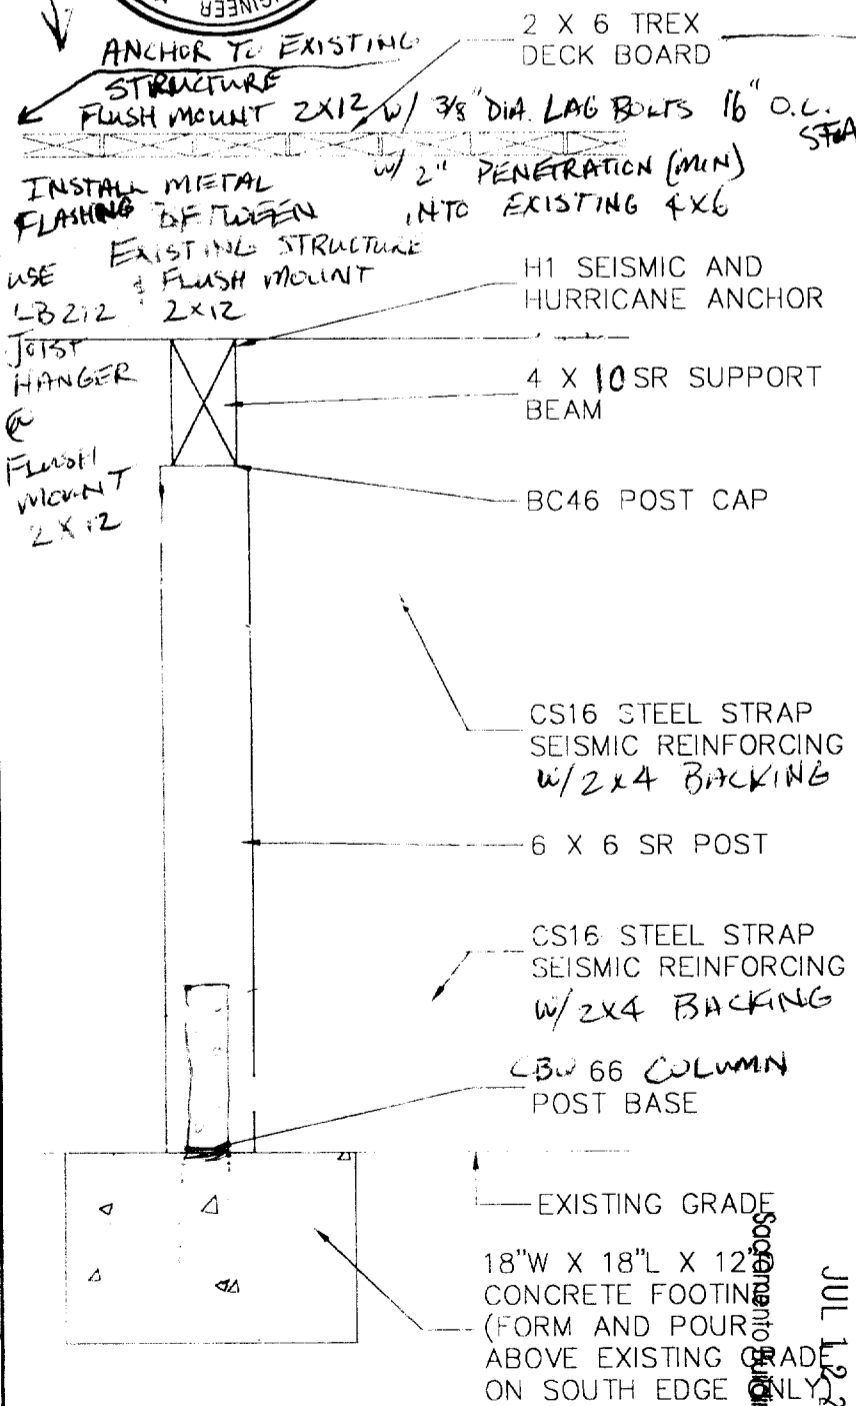 GINEER
2 X 6 TREX
DECK BOARD
ANCHOR TO EXISTING
STRUCTURE
FLUSH MOUNT 2X12 W/ 3/8" DIA. LAG BOLTS 16" O.C.
W/ 2" PENETRATION (MIN)
INTO EXISTING 4X6
INSTALL METAL
FLASHING BETWEEN
EXISTING STRUCTURE
& FLUSH MOUNT
2X12
USE
LB212
JOIST
HANGER
@
FLUSH
MOUNT
2X12
H1 SEISMIC AND
HURRICANE ANCHOR
4 X 10 SR SUPPORT
BEAM
BC46 POST CAP
CS16 STEEL STRAP
SEISMIC REINFORCING
W/ 2X4 BACKING
6 X 6 SR POST
CS16 STEEL STRAP
SEISMIC REINFORCING
W/ 2X4 BACKING
66 COLUMN
POST BASE
EXISTING GRADE
18"W X 18"L X 12"
CONCRETE FOOTING
(FORM AND POUR
ABOVE EXISTING GRADE
ON SOUTH EDGE ONLY)
Sacramento
JUL 12 2